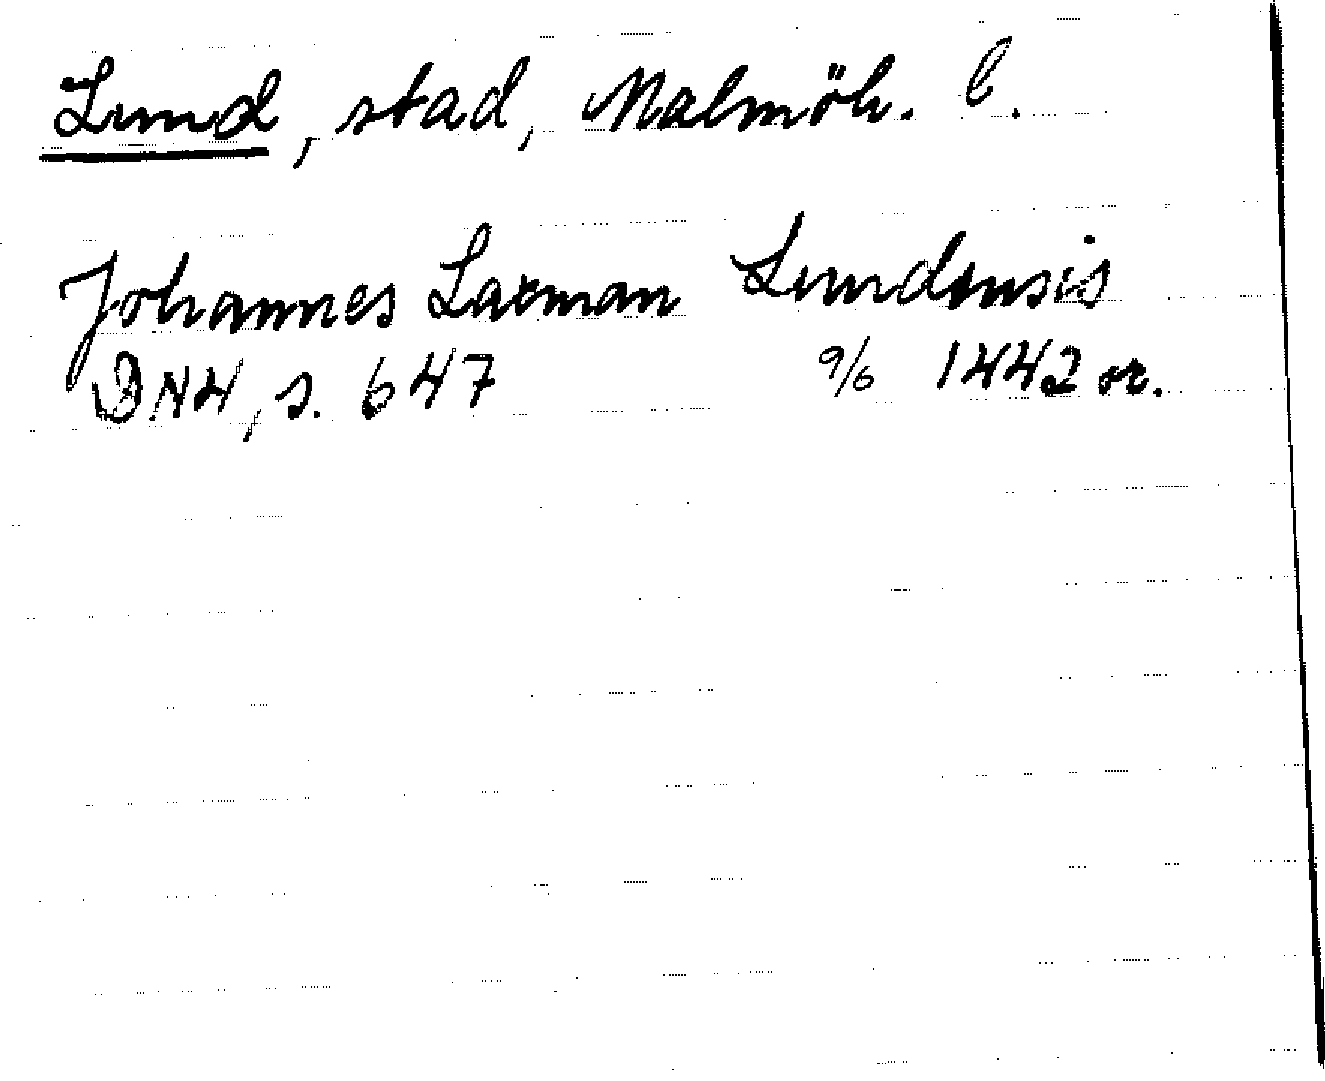 Lund, stad, Malmöh. l.
Johannes Laxman Lundensis
DN4, s. 647 9/6 1442 or.